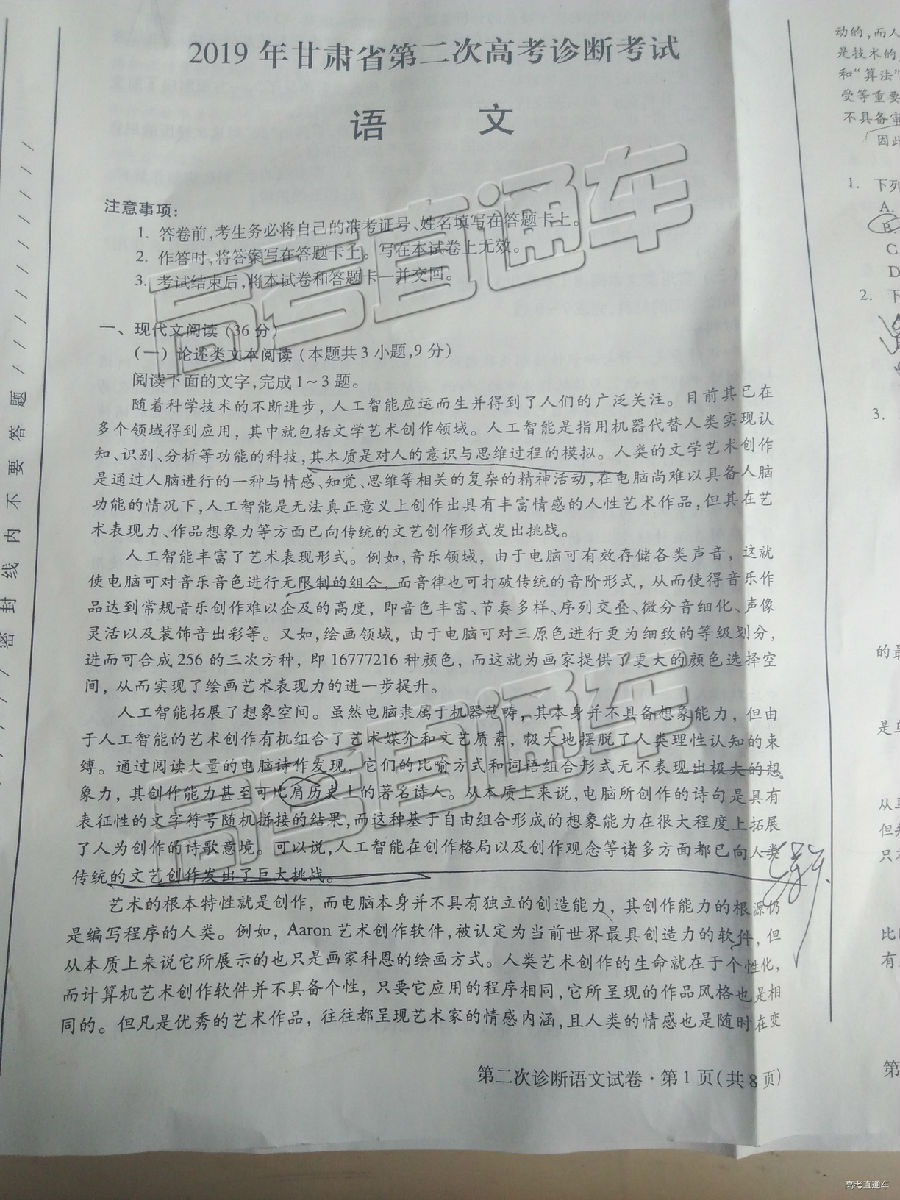 2019年甘肃省第二次高考诊断考试
语 文
注意事项:
1. 答卷前,考生务必将自己的准考证号、姓名填写在答题卡上。
2. 作答时,将答案写在答题卡上。写在本试卷上无效。
3. 考试结束后,将本试卷和答题卡一并交回。
一、现代文阅读(36分)
(一)论述类文本阅读(本题共3小题,9分)
阅读下面的文字,完成1~3题。
随着科学技术的不断进步,人工智能应运而生并得到了人们的广泛关注。目前其已在
多个领域得到应用,其中就包括文学艺术创作领域。人工智能是指用机器代替人类实现认
知、识别、分析等功能的科技,其本质是对人的意识与思维过程的模拟。人类的文学艺术创作
是通过人脑进行的一种与情感、知觉、思维等相关的复杂的精神活动,在电脑尚难以具备人脑
功能的情况下,人工智能是无法真正意义上创作出具有丰富情感的人性艺术作品,但其在艺
术表现力、作品想象力等方面已向传统的文艺创作形式发出挑战。
人工智能丰富了艺术表现形式。例如,音乐领域,由于电脑可有效存储各类声音,这就
使电脑可对音乐音色进行无限制的组合,而音律也可打破传统的音阶形式,从而使得音乐作
品达到常规音乐创作难以企及的高度,即音色丰富、节奏多样、序列交叠、微分音细化、声像
灵活以及装饰音出彩等。又如,绘画领域,由于电脑可对三原色进行更为细致的等级划分,
进而可合成256的三次方种,即16777216种颜色,而这就为画家提供了更大的颜色选择空
间,从而实现了绘画艺术表现力的进一步提升。
人工智能拓展了想象空间。虽然电脑隶属于机器范畴,其本身并不具备想象能力,但由
于人工智能的艺术创作有机组合了艺术媒介和文艺质素,极大地摆脱了人类理性认知的束
缚。通过阅读大量的电脑诗作发现,它们的比喻方式和词语组合形式无不表现出极大的想
象力,其创作能力甚至可比肩历史上的著名诗人。从本质上来说,电脑所创作的诗句是具有
表征性的文字符号随机拼接的结果,而这种基于自由组合形成的想象能力在很大程度上拓展
了人为创作的诗歌意境。可以说,人工智能在创作格局以及创作观念等诸多方面都已向人类
传统的文艺创作发出了巨大挑战。
艺术的根本特性就是创作,而电脑本身并不具有独立的创造能力,其创作能力的根源仍
是编写程序的人类。例如,Aaron艺术创作软件,被认定为当前世界最具创造力的软件,但
从本质上来说它所展示的也只是画家科恩的绘画方式。人类艺术创作的生命就在于个性化,
而计算机艺术创作软件并不具备个性,只要它应用的程序相同,它所呈现的作品风格也是相
同的。但凡是优秀的艺术作品,往往都呈现艺术家的情感内涵,且人类的情感也是随时在变
第二次诊断语文试卷·第1页(共8页)
密封线内不要答题
动的,而人
是技术的
和“算法”
受等重要
不具备
因此
1. 下列
A.
B
C
D
2. 下
3.
的最
是
从
但
只
比
有
第
高考直通车
高考直通车
高考直通车